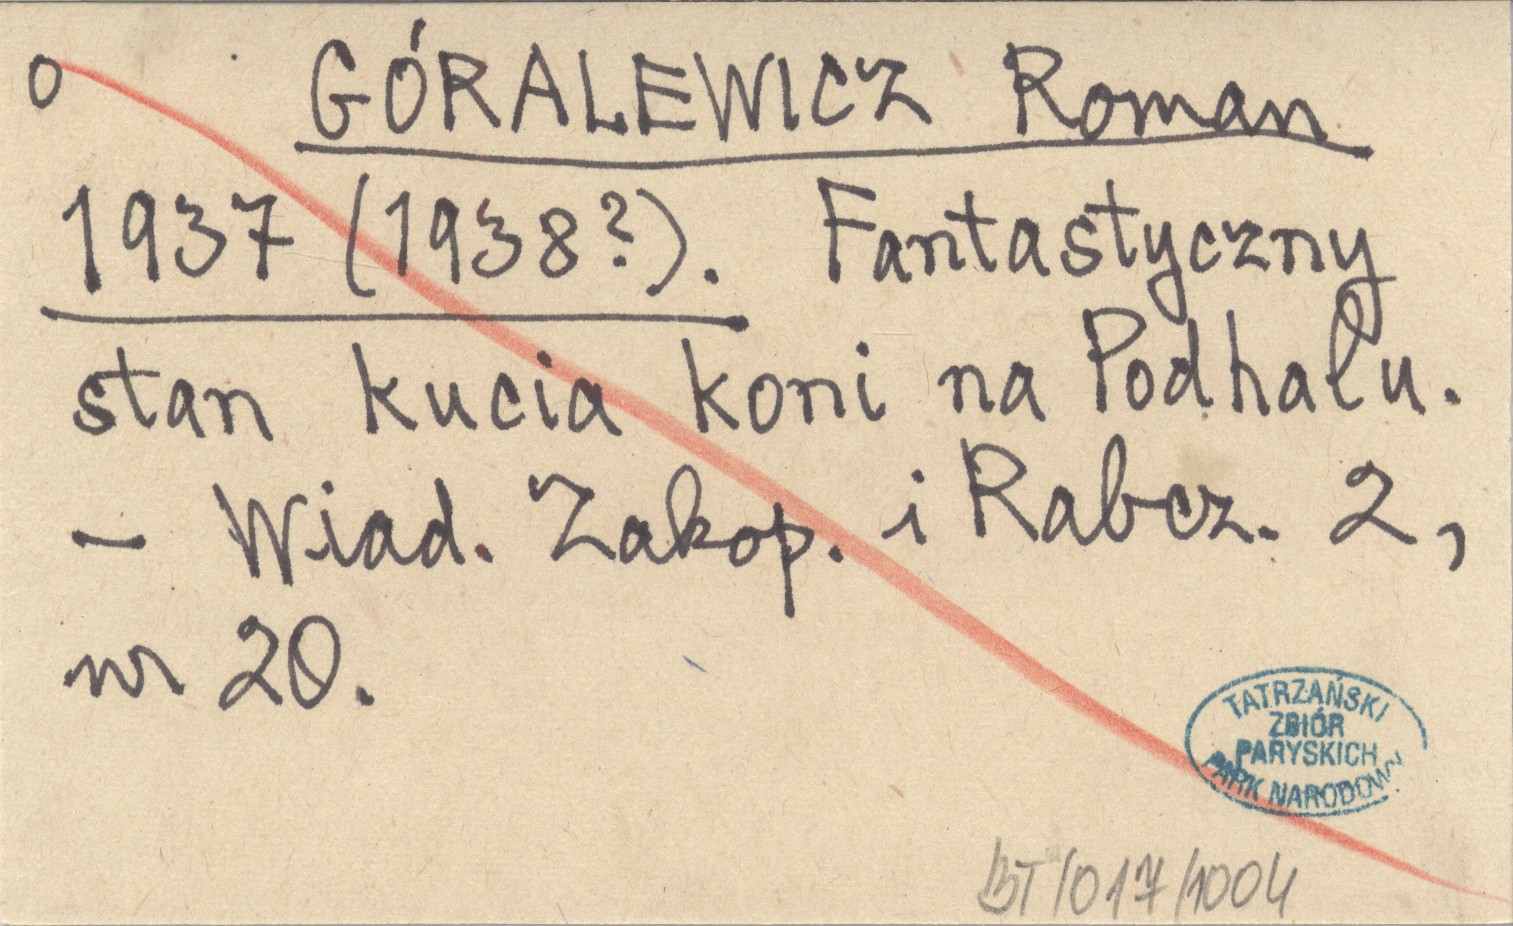 o GÓRALEWICZ Roman
1937 (1938?). Fantastyczny
stan kucia koni na Podhalu.
- Wiad. Zakop. i Rabcz. 2,
nr 20.
TATRZAŃSKI
ZBIÓR
PARYSKICH
PARK NARODOWY
BT/017/1004